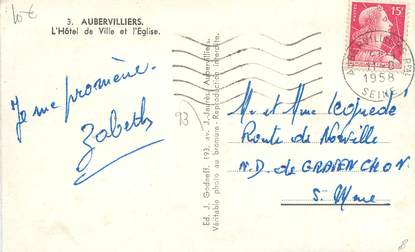 10€
3. AUBERVILLIERS.
L'Hôtel de Ville et l'Eglise.
Je me promène.
Zabeth
93
Ed. J. Godneff. 193, av. J.-Jaurès, Aubervilliers.
Véritable photo au bromure - Reproduction interdite
15F
AUBERVILLIERS PPAL
1958
SEINE
Mr et Mme
Route de Norville
N.D. de GRAVENCHON
S. Mme